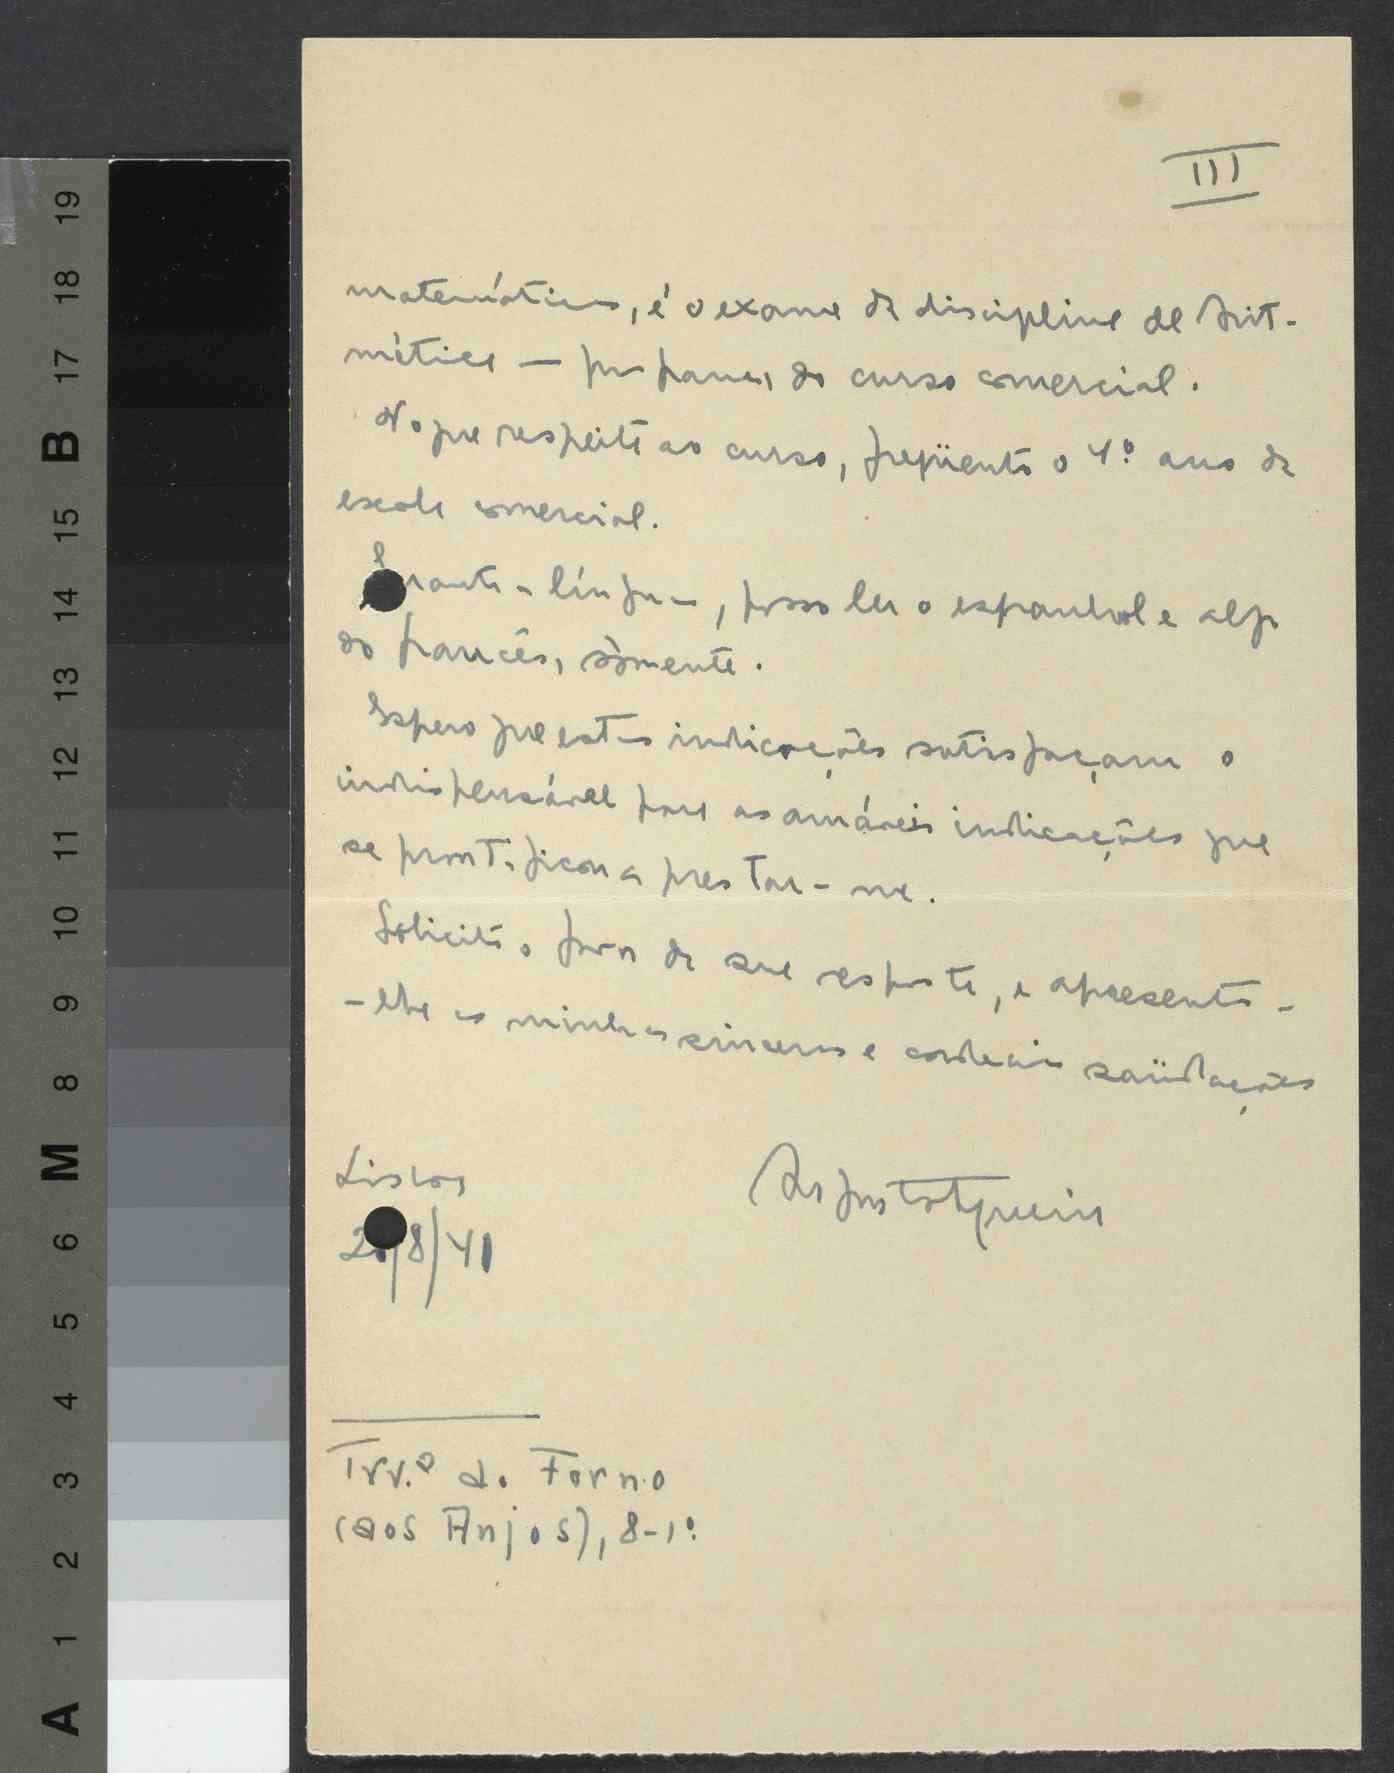 III
matemáticas, é o exame da disciplina de Arit-
mética — do curso comercial.
No que respeita ao curso, freqüento o 4º ano da
escola comercial.
línguas, posso ler o espanhol e algo
do francês, sòmente.
Espero que estas indicações satisfaçam o
indispensável para as amáveis indicações que
se prontificou a prestar-me.
Solicito o favor da sua resposta, e apresento-
-lhe as minhas sinceras e cordeais saüdações
Lisboa
/8/41
Trv.ª do Forno
(aos Anjos), 8-1º
19
18
17
B
15
14
13
12
11
10
9
8
M
6
5
4
3
2
1
A